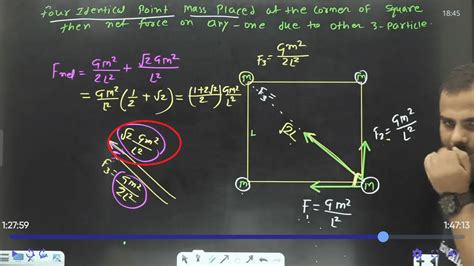 18:45
Four Identical Point Mass Placed at the corner of Square
then net force on any-one due to other 3-Particle.
Fnet = Gm²/2L² + √2Gm²/L²
= Gm²/L² (1/2 + √2) = (1+2√2/2) Gm²/L²
F₃ = Gm²/2L²
M
M
F₃ =
√2 Gm²/L²
L
√2L
F₂ = Gm²/L²
F₃ = Gm²/2L²
M
M
F = Gm²/L²
1:27:59
1:47:13